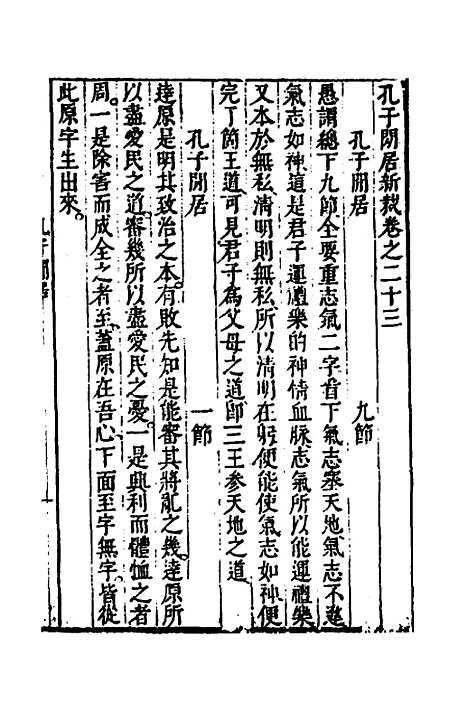 孔子閒居新裁卷之二十三
孔子閒居　九節
愚謂總下九節全要重志氣二字首下氣志塞天地氣志不違
氣志如神這是君子運禮樂的神情血脉志氣所以能運禮樂
又本於無私清明則無私所以清明在躬便能使氣志如神便
完了箇王道可見君子為父母之道即三王參天地之道
孔子閒居　一節
達原是明其致治之本有敗先知是能審其將亂之幾達原所
以盡愛民之道審幾所以盡愛民之憂一是興利而體恤之者
周一是除害而成全之者至蓋原在吾心下面至字無字皆從
此原字生出來